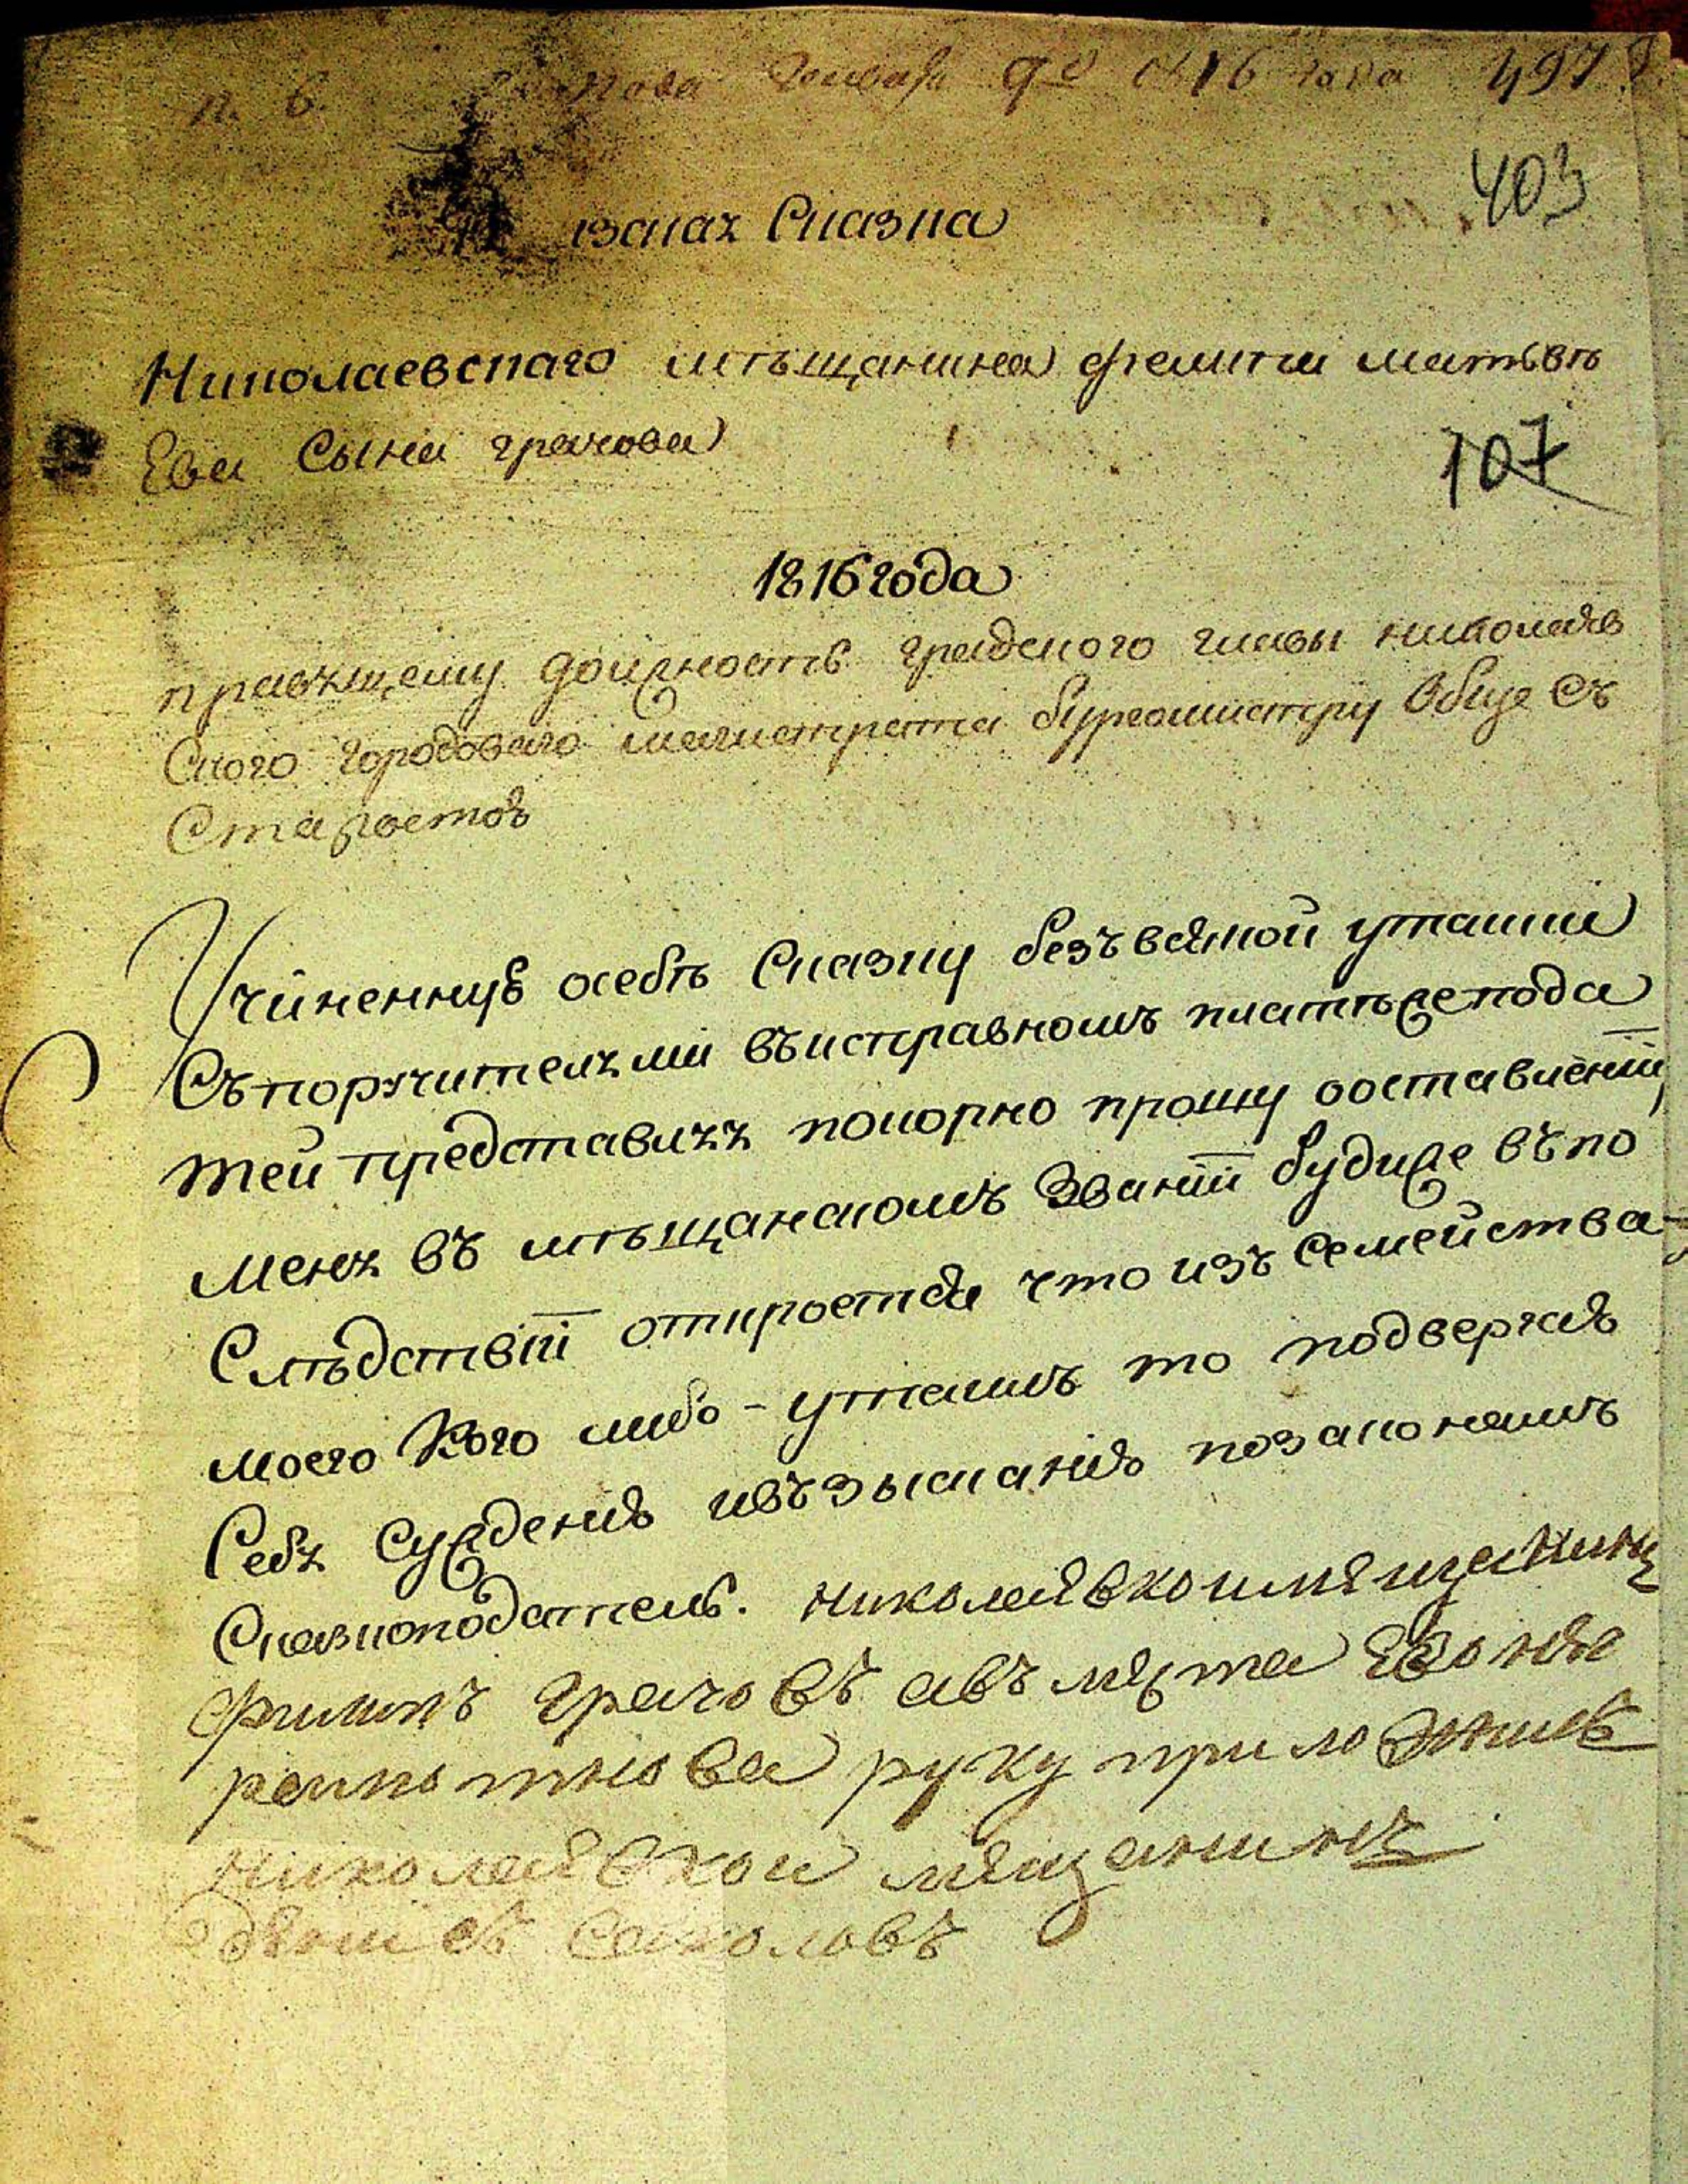 п. 6. Генваря 9го 1816 года 497
403
Сказка
Николаевскаго мѣщанина Филипа Матвѣ
Ева сына грачова
107
1816 года
правящему должность градского главы николаев
Ского городоваго магистрата бургомистру Обще Съ
Старостою
Учиненную осебѣ Сказку безъ всякой утайки
Съ поручителями въ исправномъ платеже пода
тей представляя покорно прошу о оставленіи
меня въ мѣщанскомъ Званіи будиже въ по
Слѣдствіи откроется что изъ Семейства
моего Кого либо - утаилъ то подвергаю
Себя Сужденію ивъзысканію по законамъ
Сказкоподатель. николаевкои мещанинъ
Филипъ Грачовъ а въместа ево не
грамотнова руку приложилъ
николаевкои мещанинъ
Соколовъ